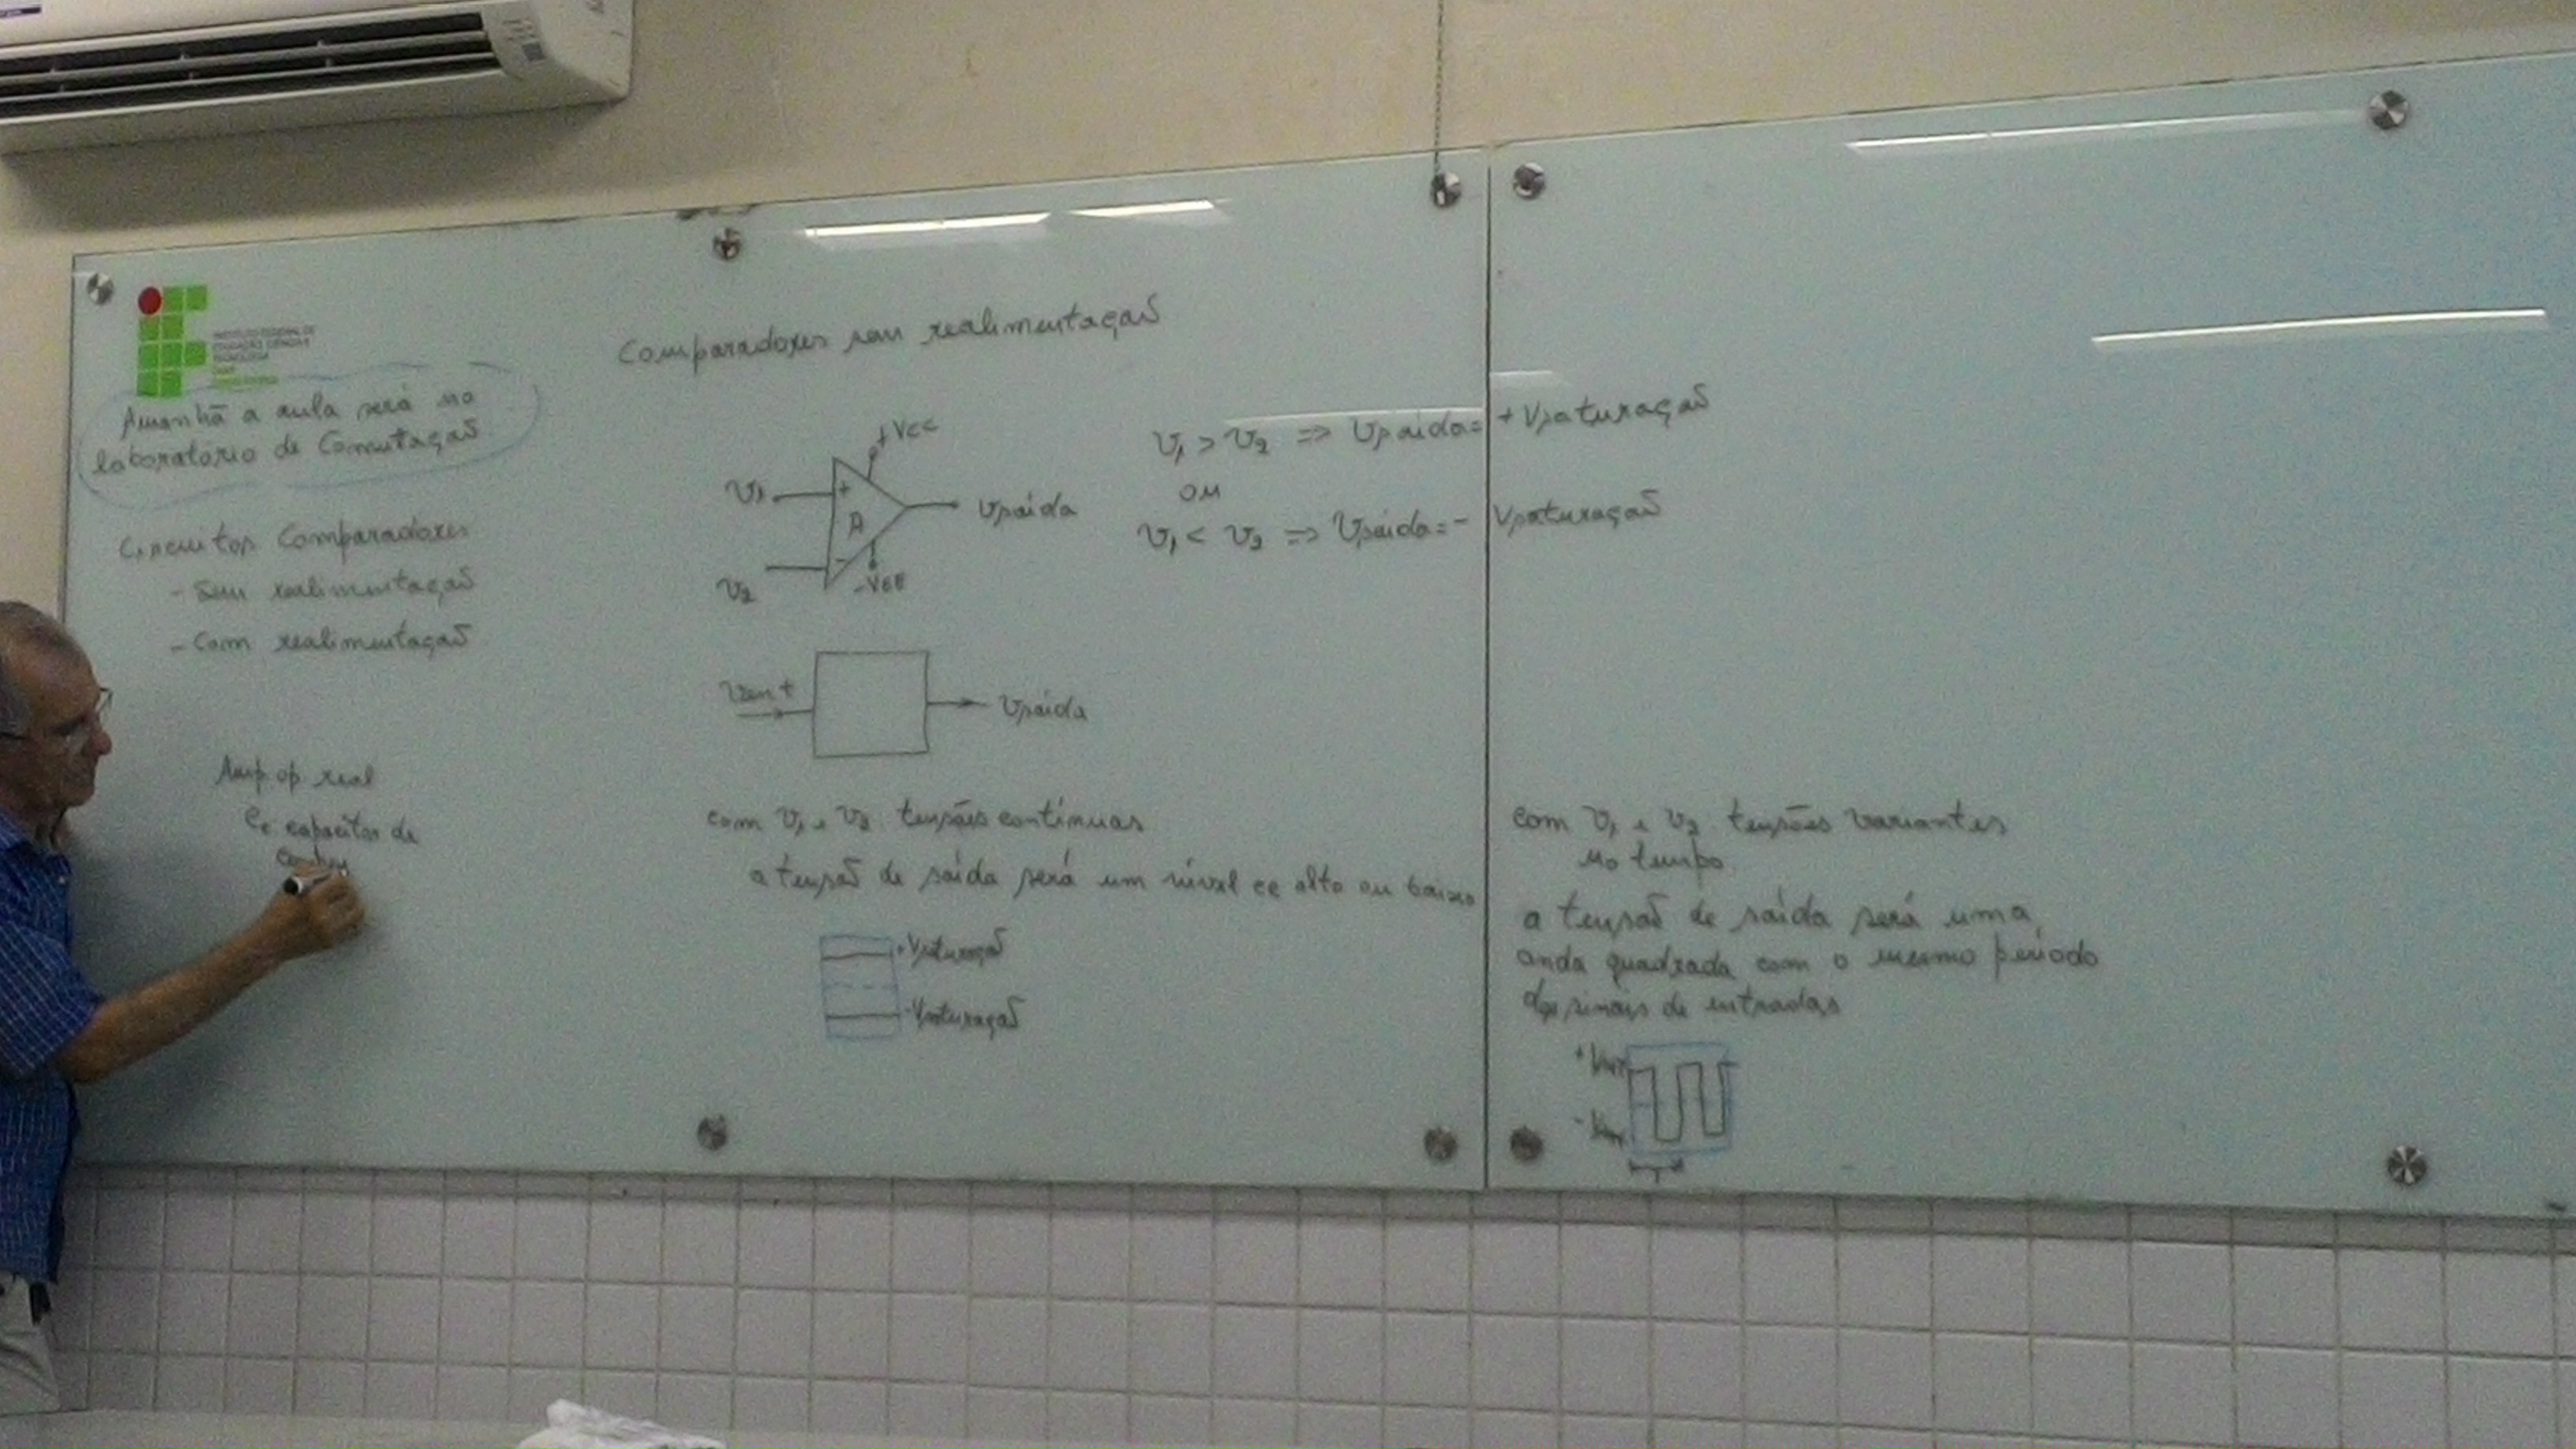 INSTITUTO FEDERAL DE
EDUCAÇÃO, CIÊNCIA E
TECNOLOGIA
Amanhã a aula será no
laboratório de Comutação
Circuitos Comparadores
- Sem realimentação
- Com realimentação
Amp. op real
Cc capacitor de
Comparadores sem realimentação
+VCC
V1
+
A
Vsaída
-
V2
-VEE
V1 > V2 => Vsaída = + Vsaturação
ou
V1 < V2 => Vsaída = - Vsaturação
Vent
Vsaída
com V1 e V2 tensões contínuas
a tensão de saída será um nível cc alto ou baixo
+Vsaturação
-Vsaturação
com V1 e V2 tensões variantes
no tempo
a tensão de saída será uma
onda quadrada com o mesmo período
dos sinais de entradas
T